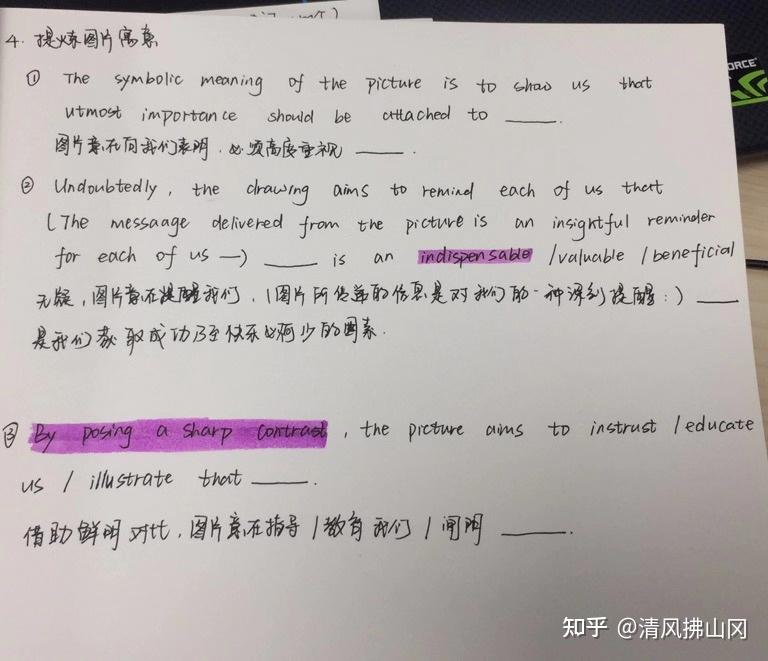 4. 提炼图片寓意
① The symbolic meaning of the picture is to show us that
utmost importance should be attached to ____.
图片意在向我们表明，必须高度重视 ____.
② Undoubtedly, the drawing aims to remind each of us that
(The messaage delivered from the picture is an insightful reminder
for each of us —) ____ is an indispensable /valuable /beneficial
无疑，图片意在提醒我们，(图片所传递的信息是对我们的一种深刻提醒：) ____
是我们获取成功乃至快乐必不可少的因素.
③ By posing a sharp contrast, the picture aims to instrust /educate
us / illustrate that ____.
借助鲜明对比，图片意在指导/教育我们/阐明 ____.
ORCE
知乎 @清风拂山冈